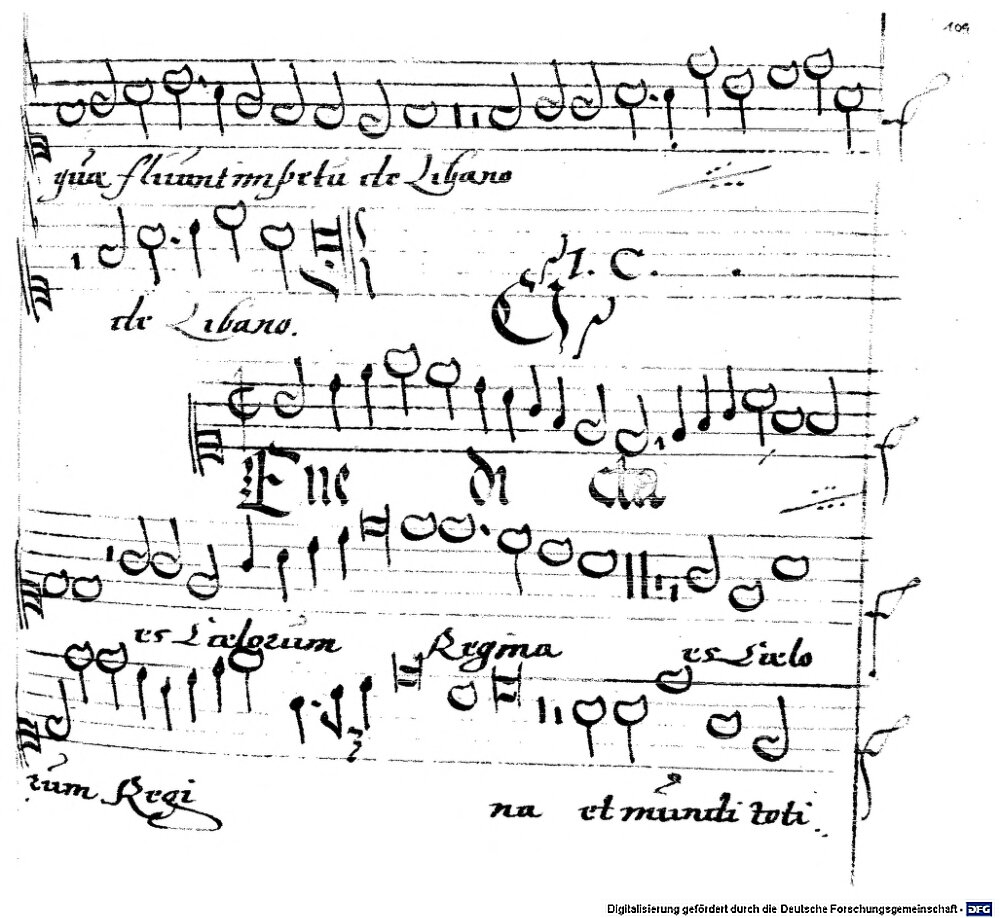 109
quæ fluunt impetu de Libano
de Libano.
I. C.
Bene di cta
es Cælorum Regina es Cælo
rum Regi na et mundi toti
Digitalisierung gefördert durch die Deutsche Forschungsgemeinschaft - DFG